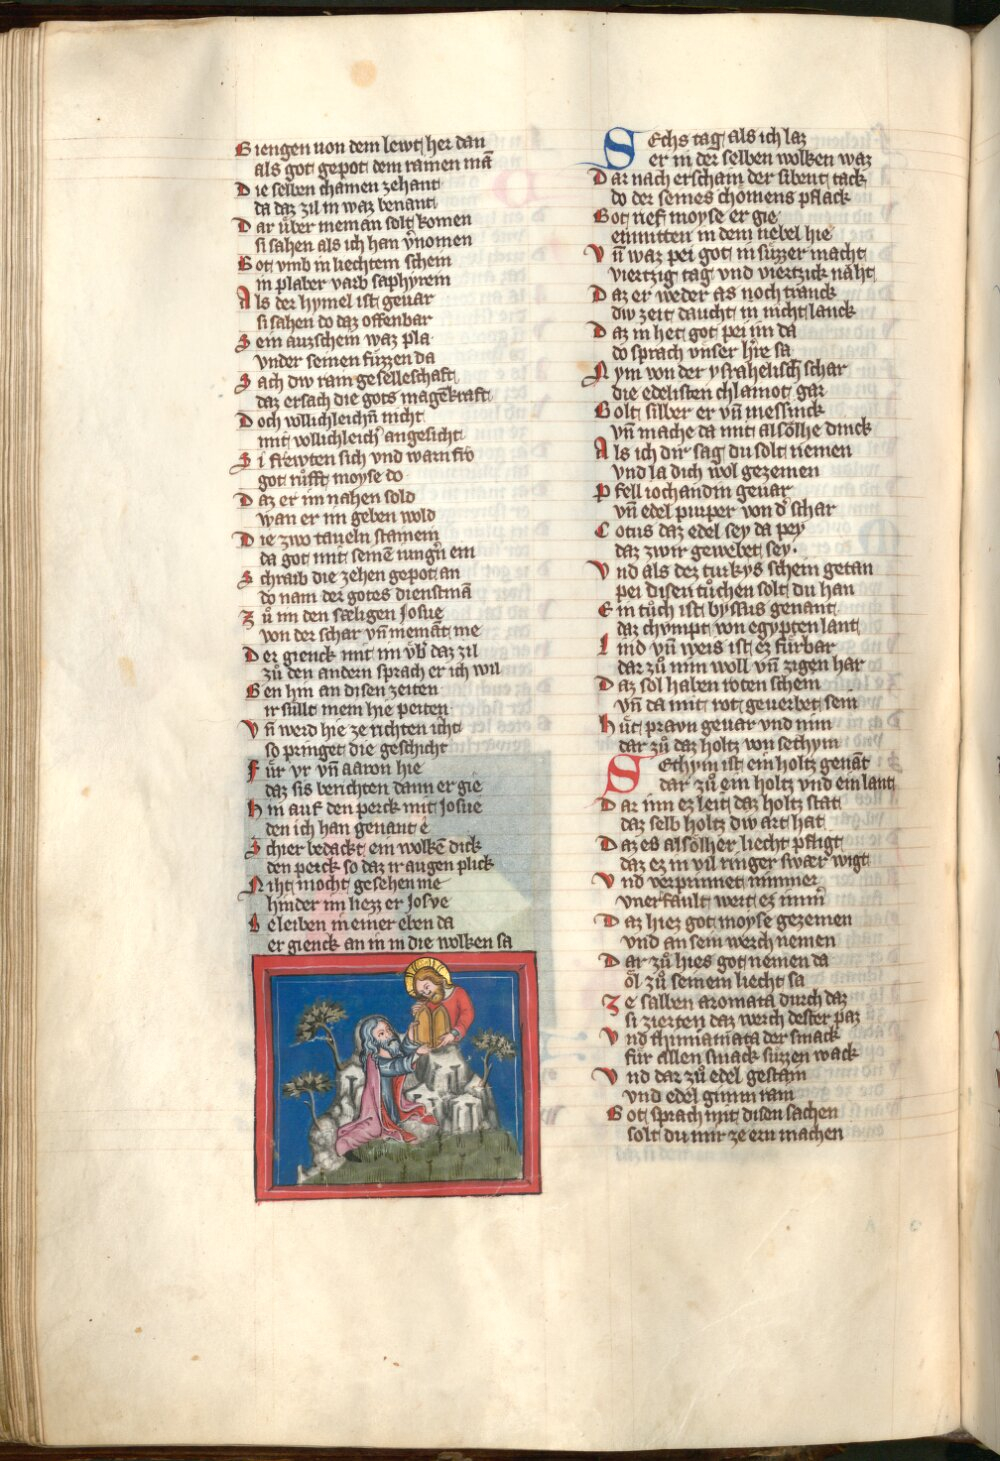 Giengen uon dem lewt her dan
als got gepot dem ramen mā
Die selben chamen zehant
da daz zil in waz benant
Dar über nieman solt komen
si sahen als ich han v̄nomen
Got vmb in liechtem schein
in plaber varb saphyrein
Als der hymel ist geuar
si sahen do daz offenbar
Sein auzschein waz pla
vnder seinen füzzen da
Sach diw rain geselleschaft
daz ersach die gots magēkraft
Doch vollichleichn̄ nicht
mit vollichleich̄ angesicht
Si frewten sich vnd warn fro
got rüfft moyse do
Daz er im nahen sold
wan er im geben wold
Die zwo taueln stainein
da got mit seinē
Schraib die zehen gepot an
do nam der gotes dienstmā
Zů im den sæligen Josue
von der schar vn̄ niemāt me
Der gienck mit im vb̄ daz zil
zů den andern sprach er ich wil
Gen hin an disen zeiten
ir süllt mein hie peiten
Vn̄ werd hie ze richten icht
so pringet die geschicht
Für vr vn̄ aaron hie
daz sis berichten dann er gie
Hin auf den perck mit Josue
den ich han genant e
Schier bedackt ein wolkē dick
den perck so daz ir augen plick
Niht mocht gesehen me
hinder im liezz er Josve
Beleiben in einer eben da
er gienck an in in die wolken sa
SEchs tag als ich laz
er in der selben wolken waz
Dar nach erschain der sibent tack
do der seines chomens pflack
Got rief moyse er gie
enmitten in dem nebel hie
Vn̄ waz pei got in süzzer macht
viertzig tag vnd viertzick näht
Daz er weder as noch tranck
diw zeit daucht in nicht lanck
Daz in het got pei im da
do sprach vnser h̄re sa
Nym von der ysrahelisch schar
die edelisten chlainot gar
Golt silber er vn̄ messinck
vn̄ mache da mit alsölhe dinck
Als ich dir sag du solt nemen
vnd la dich wol gezemen
Pfell iochandin geuar
vn̄ edel purper von d̄ schar
Cotus daz edel sey da pey
daz zwir gewebet sey.
Vnd als der turkys schein getan
pei disen tůchen solt du han
Ein tůch ist byssus genant
daz chympt von egypten lant
Lind vn̄ weis ist ez fürbar
dar zů nim woll vn̄ zigen har
Daz sol haben roten schein
vn̄ da mit rot geuerbet sein
Hüt pravn geuar vnd nim
dar zů daz holtz von sethym
SEthym ist ein holtz genāt
dar zů ein holtz vnd ein lant
Dar inn ez leit daz holtz stat
daz selb holtz diw art hat
Daz es alsölher liecht pfligt
daz ez in vil ringer swær wigt
Vnd verprinnet nimmer
vnerfault wert ez imm̄
Daz hiez got moyse gezemen
vnd an sein werch nemen
Dar zů hies got nemen da
öl zů seinem liecht sa
Ze salben aromata durch daz
si zierten daz werch dester paz
Vnd thimiamata der smack
für allen smack süzzen wack
Vnd dar zů edel gestain
vnd edel gimm rain
Got sprach mit disen sachen
solt du mir ze ern machen